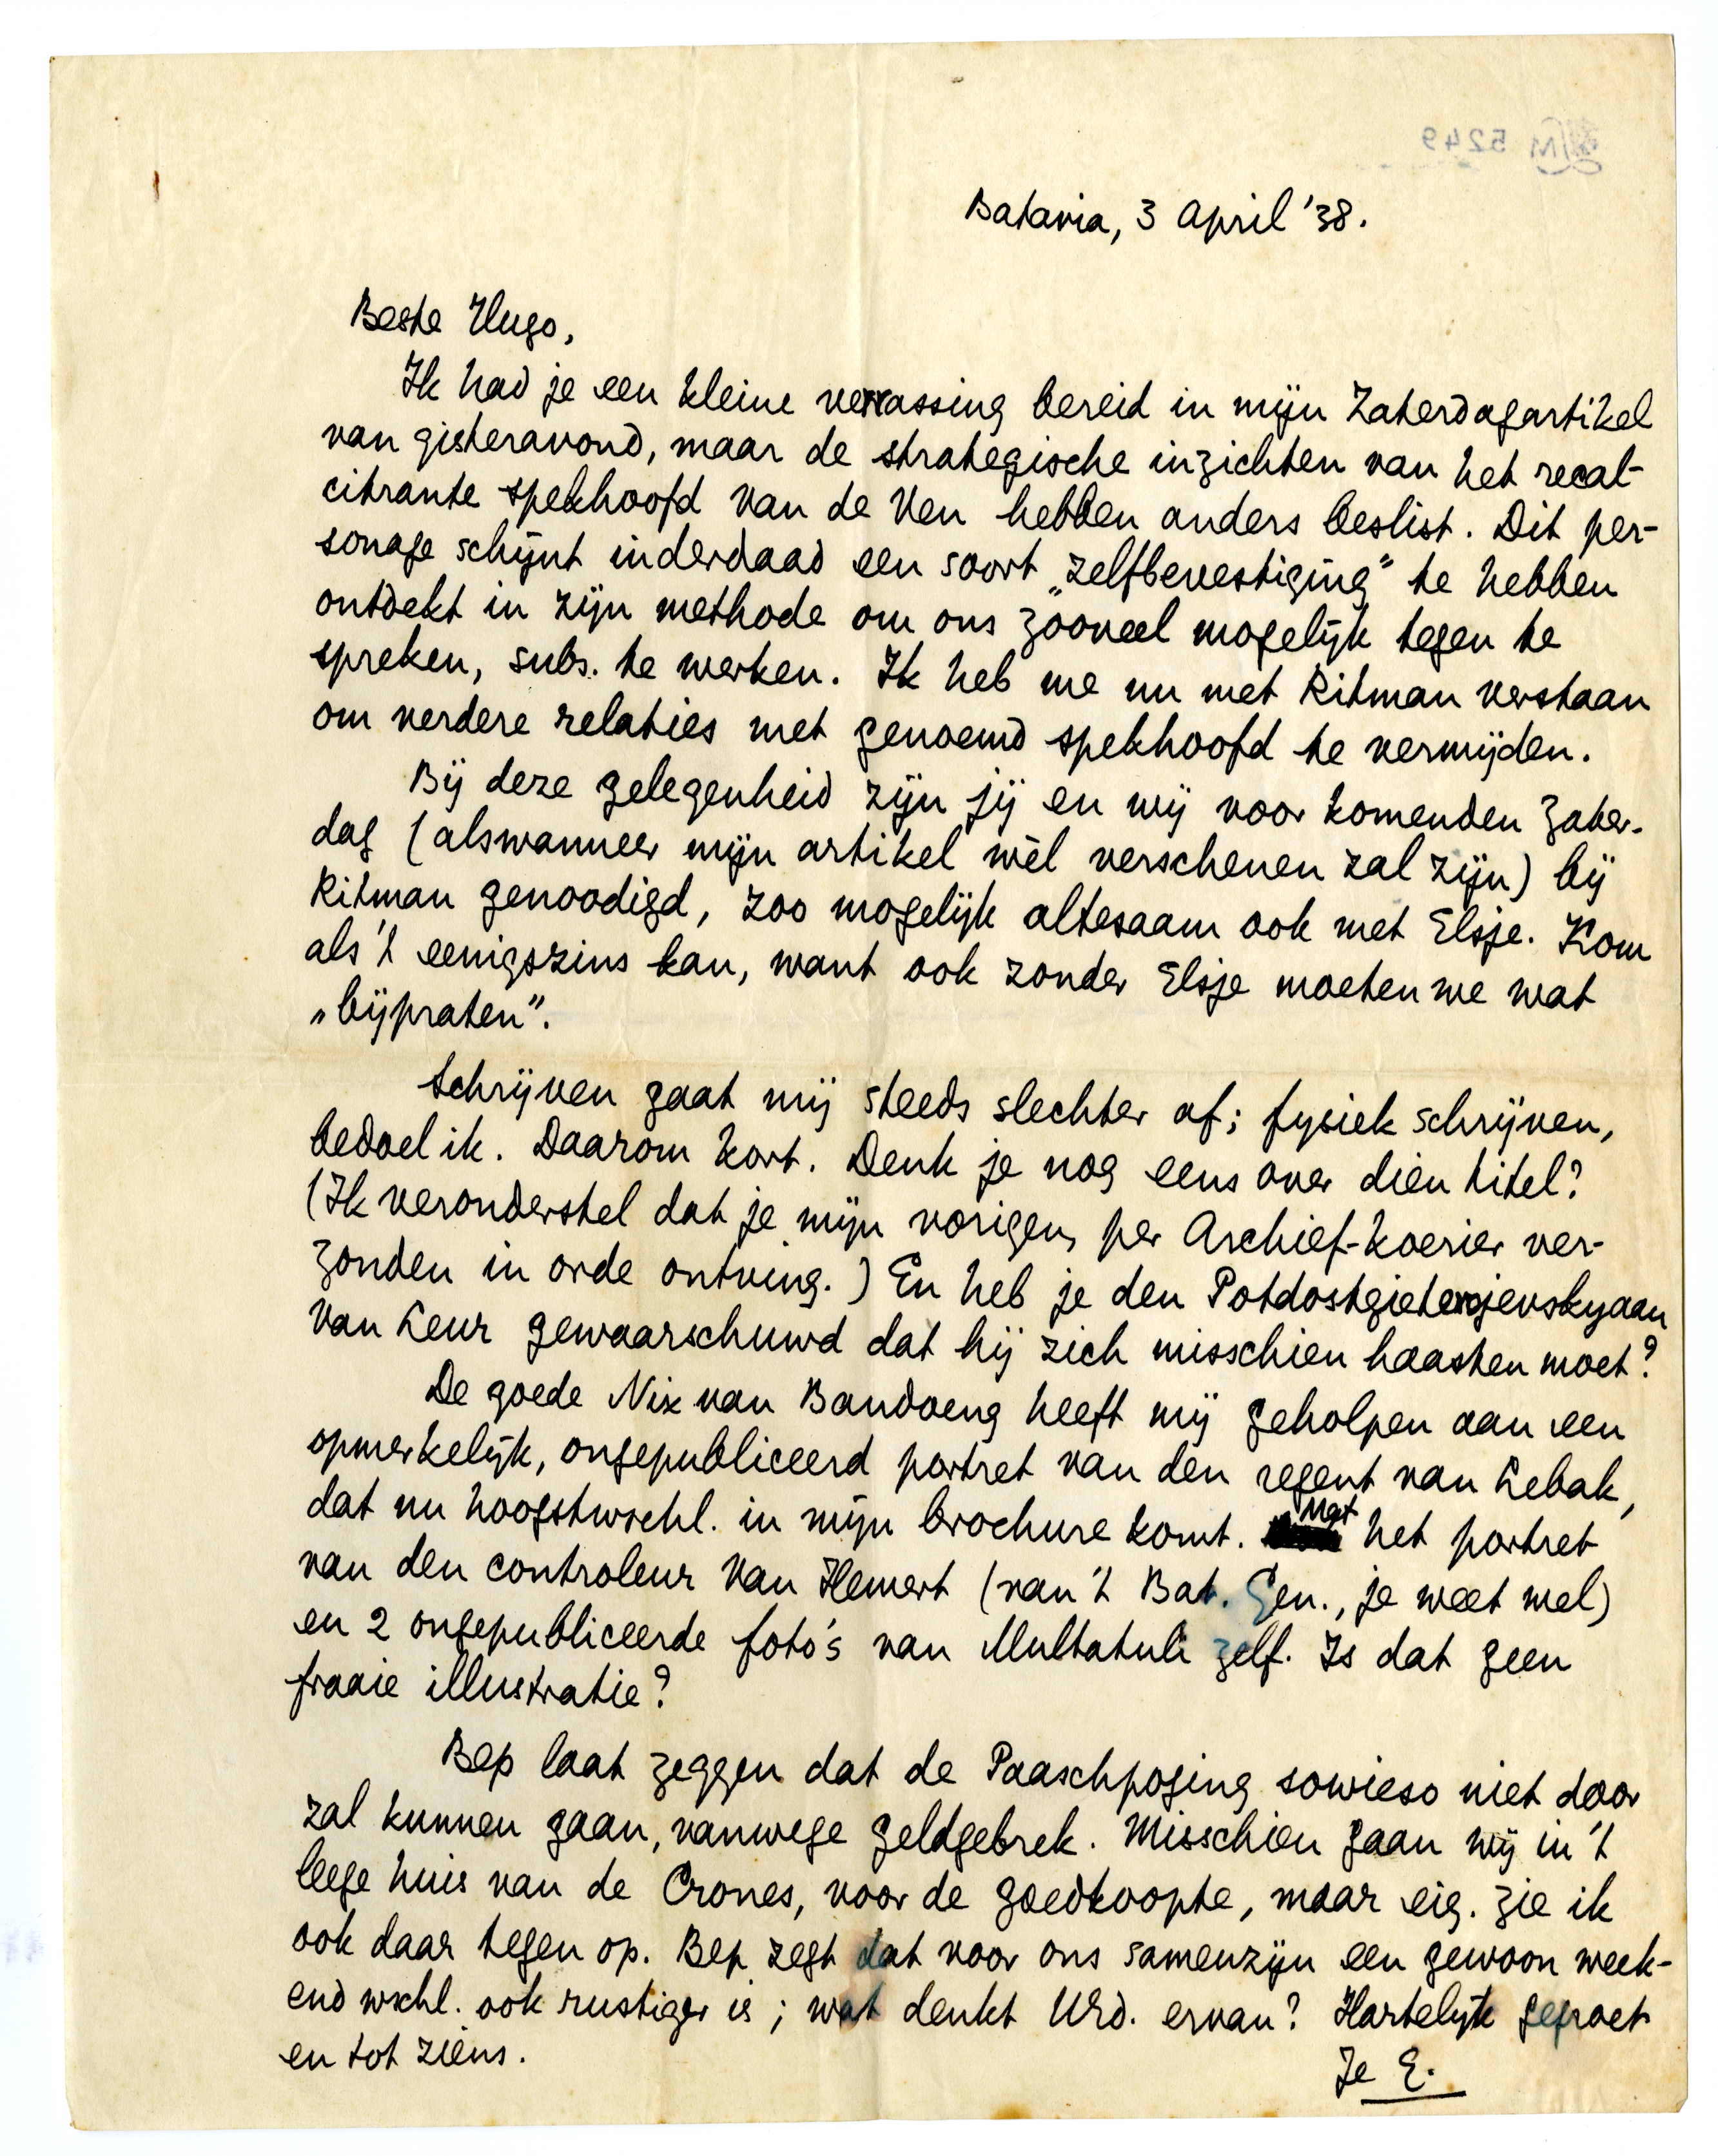 Batavia, 3 April '38.
Beste Hugo,
Ik had je een kleine verrassing bereid in mijn Zaterdagartikel
van gisteravond, maar de strategische inzichten van het recal-
citrante spekhoofd Van de Ven hebben anders beslist. Dit per-
sonage schijnt inderdaad een soort „zelfbevestiging” te hebben
ontdekt in zijn methode om ons zooveel mogelijk tegen te
spreken, subs. te werken. Ik heb me nu met Ritman verstaan
om verdere relaties met genoemd spekhoofd te vermijden.
Bij deze gelegenheid zijn jij en wij voor komenden Zater-
dag (alswanneer mijn artikel wèl verschenen zal zijn) bij
Ritman genoodigd, zoo mogelijk altesaam ook met Elsje. Kom
als 't eenigszins kan, want ook zonder Elsje moeten we wat
„bijpraten”.
Schrijven gaat mij steeds slechter af; fysiek schrijven,
bedoel ik. Daarom kort. Denk je nog eens over dien titel?
(Ik veronderstel dat je mijn vorigen, per Archief-koerier ver-
zonden in orde ontving.) En heb je den Potdostgieterojevskyaan
Van Leur gewaarschuwd dat hij zich misschien haasten moet?
De goede Nix van Bandoeng heeft mij geholpen aan een
opmerkelijk, ongepubliceerd portret van den regent van Lebak,
dat nu hoogstwschl. in mijn brochure komt. Met het portret
van den controleur Van Hemert (van 't Bat. Gen., je weet wel)
en 2 ongepubliceerde foto's van Multatuli zelf. Is dat geen
fraaie illustratie?
Bep laat zeggen dat de Paaschpoging sowieso niet door
zal kunnen gaan, vanwege geldgebrek. Misschien gaan wij in 't
leege huis van de Crones, voor de goedkoopte, maar eig. zie ik
ook daar tegen op. Bep zegt dat voor ons samenzijn een gewoon week-
end wschl. ook rustiger is; wat denkt UEd. ervan? Hartelijk gegroet
en tot ziens.
Je E.
5249